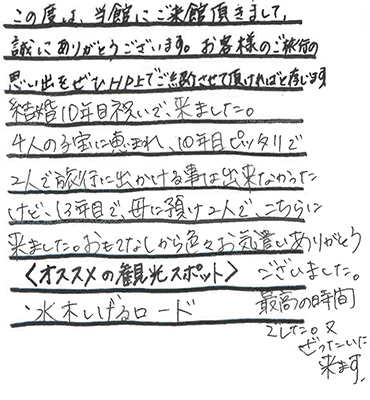 この度は、当館にご来館頂きまして、
誠にありがとうございます。お客様のご旅行の
思い出をぜひHP上でご紹介させて頂ければと存じます
結婚10年目祝いで、来ました。
4人の子宝に恵まれ、10年目ピッタリで
2人で旅行に出かける事は出来なかった
けど、13年目で、母に預け2人で、こちらに
来ました。おもてなしから色々お気遣いありがとう
ございました。
最高の時間
でした。又
ぜったいに
来ます。
〈オススメの観光スポット〉
水木しげるロード